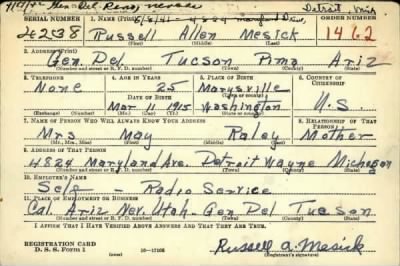 Gen. Del. Reno, Nevada
5/8/41 - 4824 Maryland Ave., Detroit, Mich
SERIAL NUMBER 1. NAME (Print) ORDER NUMBER
4258 Russell Allen Mesick 1462
(First) (Middle) (Last)
2. ADDRESS (Print)
Gen. Del. Tucson Pima Ariz
(Number and street or R. F. D. number) (Town) (County) (State)
3. TELEPHONE 4. AGE IN YEARS 5. PLACE OF BIRTH 6. COUNTRY OF CITIZENSHIP
None 25 Marysville
DATE OF BIRTH
Mar 11 1915 Washington U.S.
(Exchange) (Number) (Mo.) (Day) (Yr.) (State or country)
7. NAME OF PERSON WHO WILL ALWAYS KNOW YOUR ADDRESS 8. RELATIONSHIP OF THAT PERSON
Mrs May Raley Mother
(Mr., Mrs., Miss) (First) (Middle) (Last)
9. ADDRESS OF THAT PERSON
4824 Maryland Ave. Detroit Wayne Michegan
(Number and street or R. F. D. number) (Town) (County) (State)
10. EMPLOYER'S NAME
Self - Radio Service
11. PLACE OF EMPLOYMENT OR BUSINESS
Cal. Ariz Nev. Utah. Gen. Del Tucson
(Number and street or R. F. D. number) (Town) (County) (State)
I AFFIRM THAT I HAVE VERIFIED ABOVE ANSWERS AND THAT THEY ARE TRUE.
REGISTRATION CARD
D. S. S. Form 1 16-17105
Russell A. Mesick
(Registrant's signature)